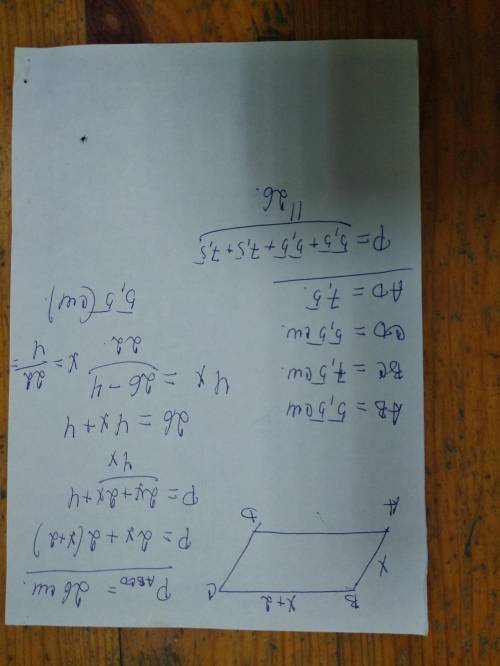 B x+2 C
x
A D
P ABCD = 26 см.
P = 2x + 2(x+2)
P = 2x + 2x + 4
4x
26 = 4x + 4
4x = 26 - 4
22.
x = 22/4 =
5,5 (см)
AB = 5,5 см
BC = 7,5 см.
CD = 5,5 см.
AD = 7,5.
P = 5,5 + 5,5 + 7,5 + 7,5
||
26.